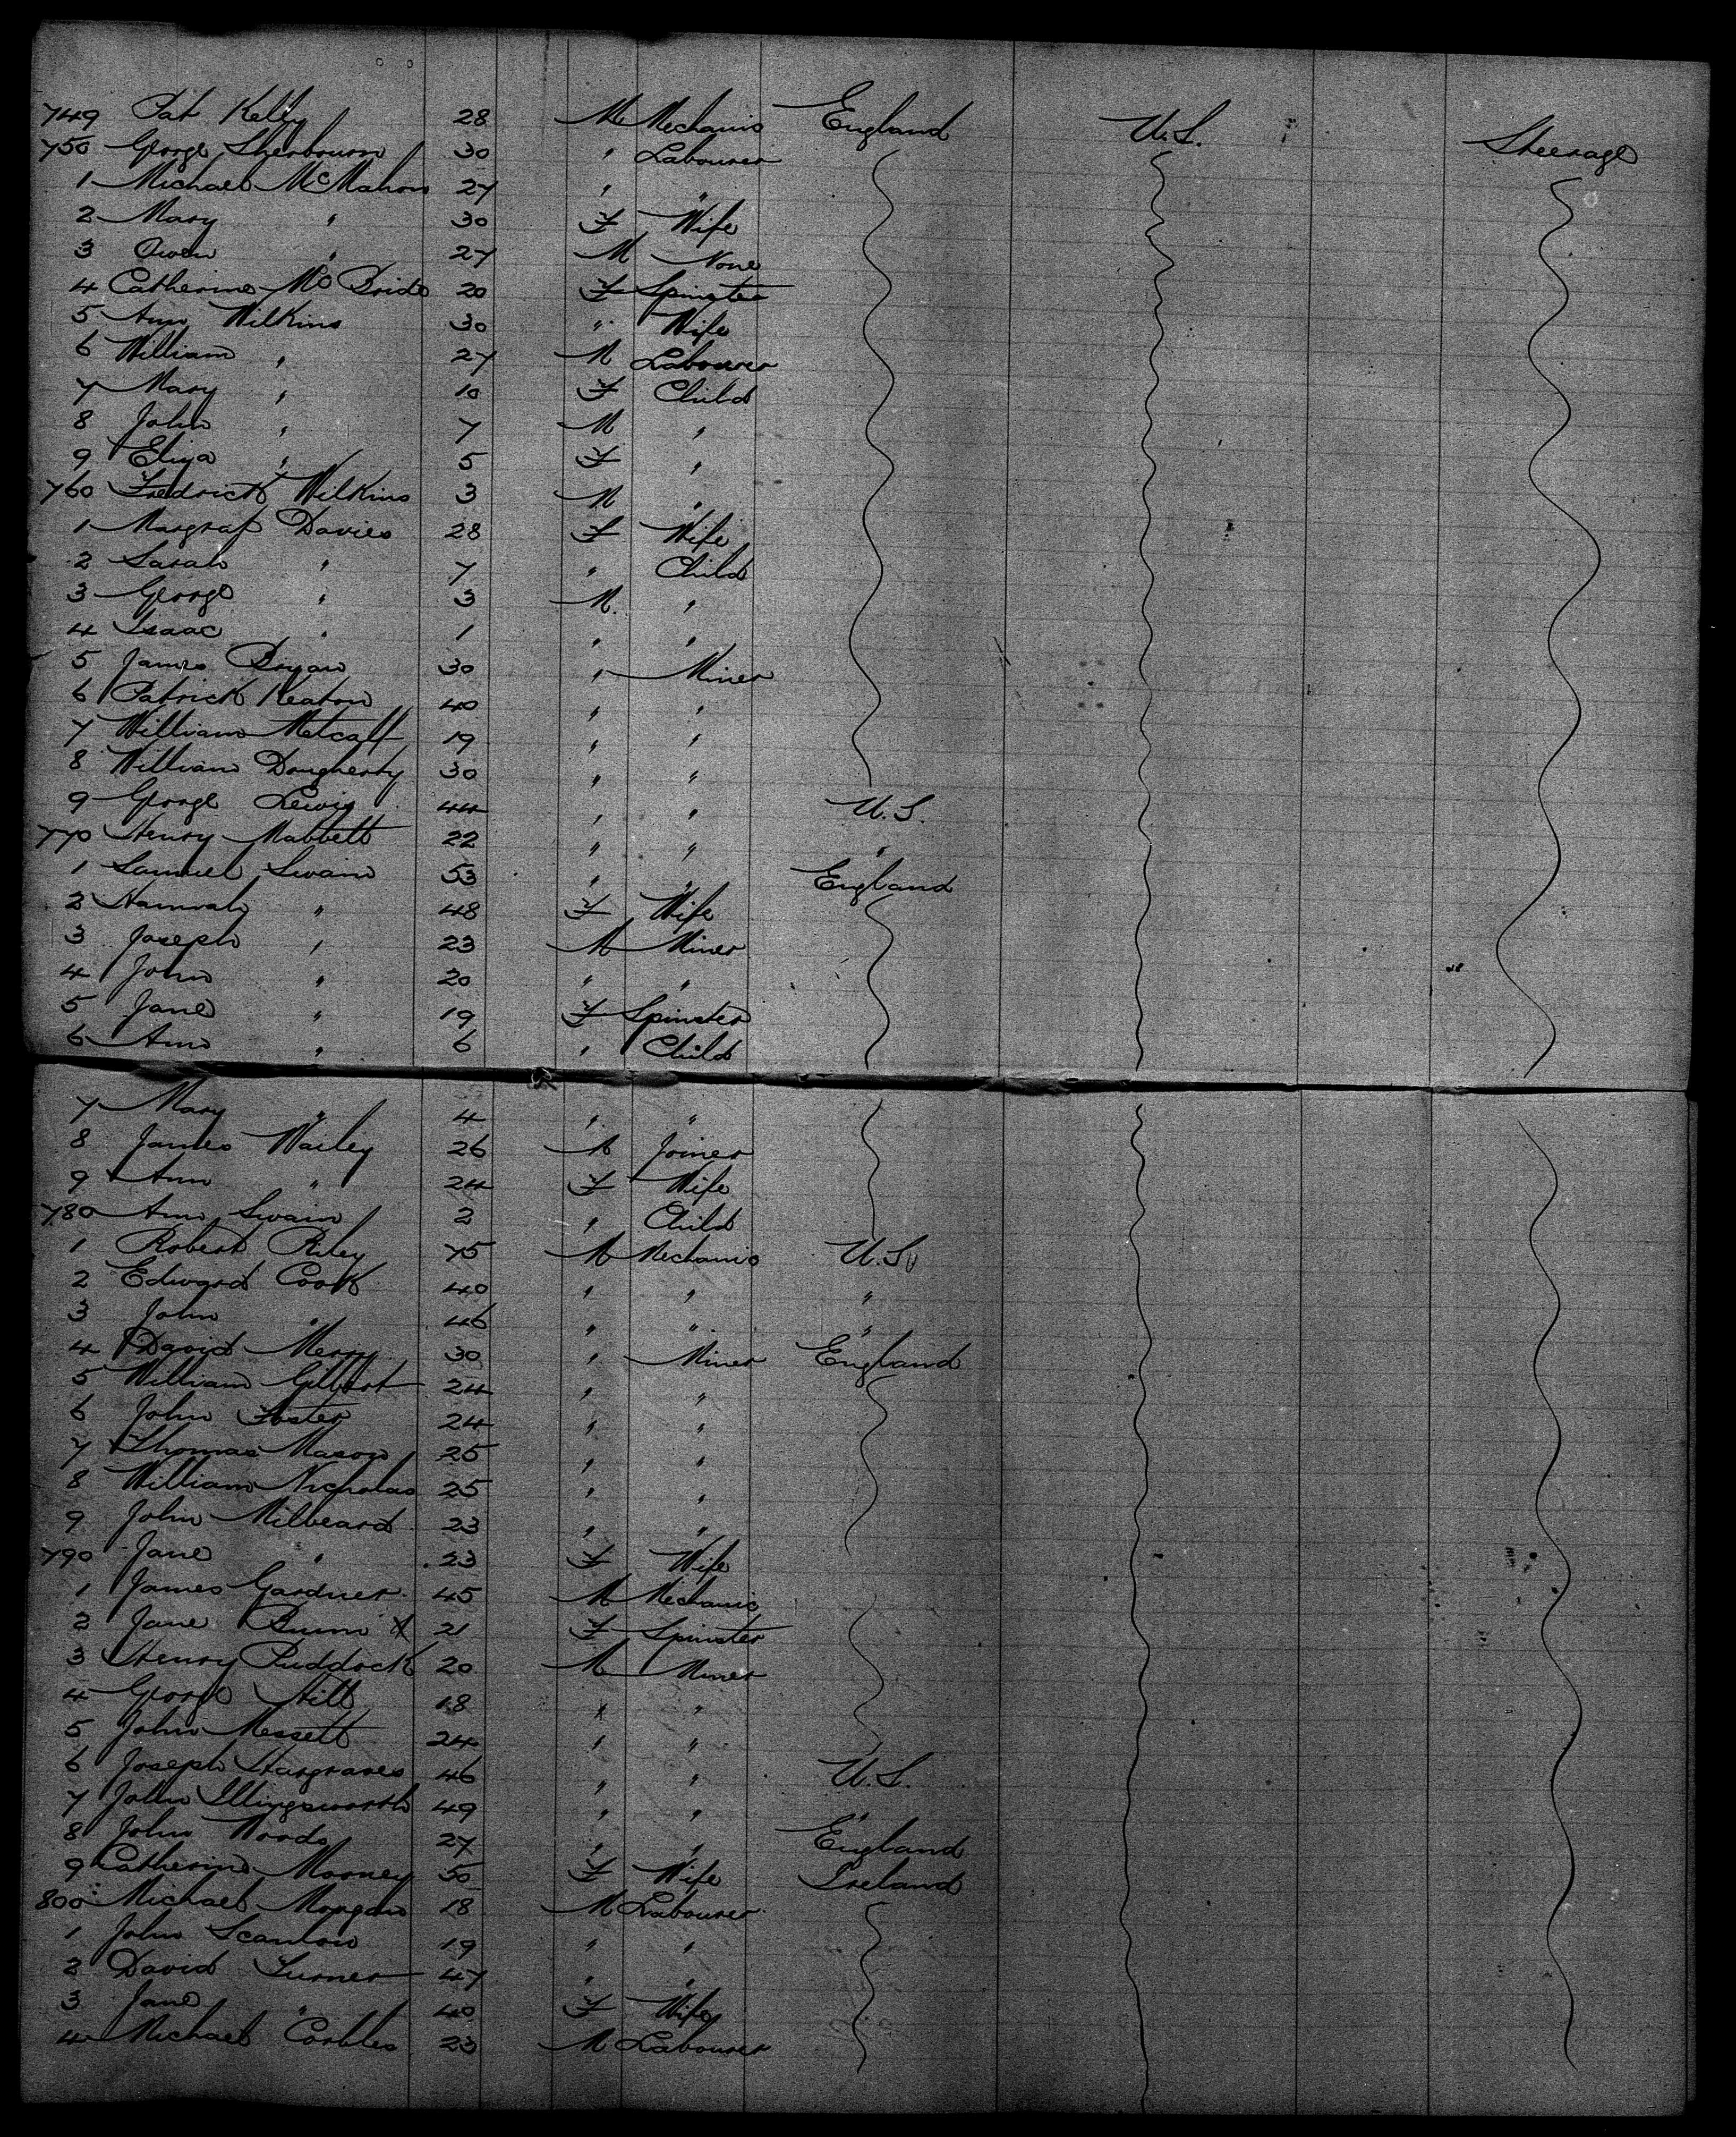 749 Pat Kelly 28 M Mechanic England U.S. Steerage
750 George Sherbourn 30 " Labourer
1 Michael McMahon 27 " "
2 Mary " 30 F Wife
3 Owen " 27 M None
4 Catherine McBride 20 F Spinster
5 Ann Wilkins 30 " Wife
6 William " 27 M Labourer
7 Mary " 10 F Child
8 John " 7 M "
9 Eliza " 5 F "
760 Fredrick Wilkins 3 M "
1 Margrat Davies 28 F Wife
2 Sarah " 7 " Child
3 George " 3 M. "
4 Isaac " 1 " "
5 James Bryan 30 " Miner
6 Patrick Keaton 40 " "
7 William Metcalf 19 " "
8 William Dougherty 30 " "
9 George Lewis 44 " " U.S.
770 Henry Mabbett 22 " " "
1 Samuel Swain 53 " " England
2 Hannah " 48 F Wife
3 Joseph " 23 M Miner
4 John " 20 " "
5 Jane " 19 F Spinster
6 Ann " 6 " Child
7 Mary " 4 " "
8 James Warley 26 M Joiner
9 Ann " 24 F Wife
780 Ann Swain 2 " Child
1 Robert Riley 75 M Mechanic U.S.
2 Edward Cook 40 " " "
3 John " 46 " " "
4 David Merry 30 " Miner England
5 William Gilbert 24 " "
6 John Foster 24 " "
7 Thomas Mason 25 " "
8 William Nicholas 25 " "
9 John Milbeard 23 " "
790 Jane " 23 F Wife
1 James Gardner 45 M Mechanic
2 Jane Bunn X 21 F Spinster
3 Henry Puddock 20 M Miner
4 George Hill 18 " "
5 John Messett 24 " "
6 Joseph Hargraves 46 " " U.S.
7 John Illingsworth 49 " " "
8 John Woods 27 " " England
9 Catherine Mooney 50 F Wife Ireland
800 Michael Morgan 18 M Labourer
1 John Scanlon 19 " "
2 David Turner 47 " "
3 Jane " 40 F Wife
4 Michael Corbles 23 M Labourer